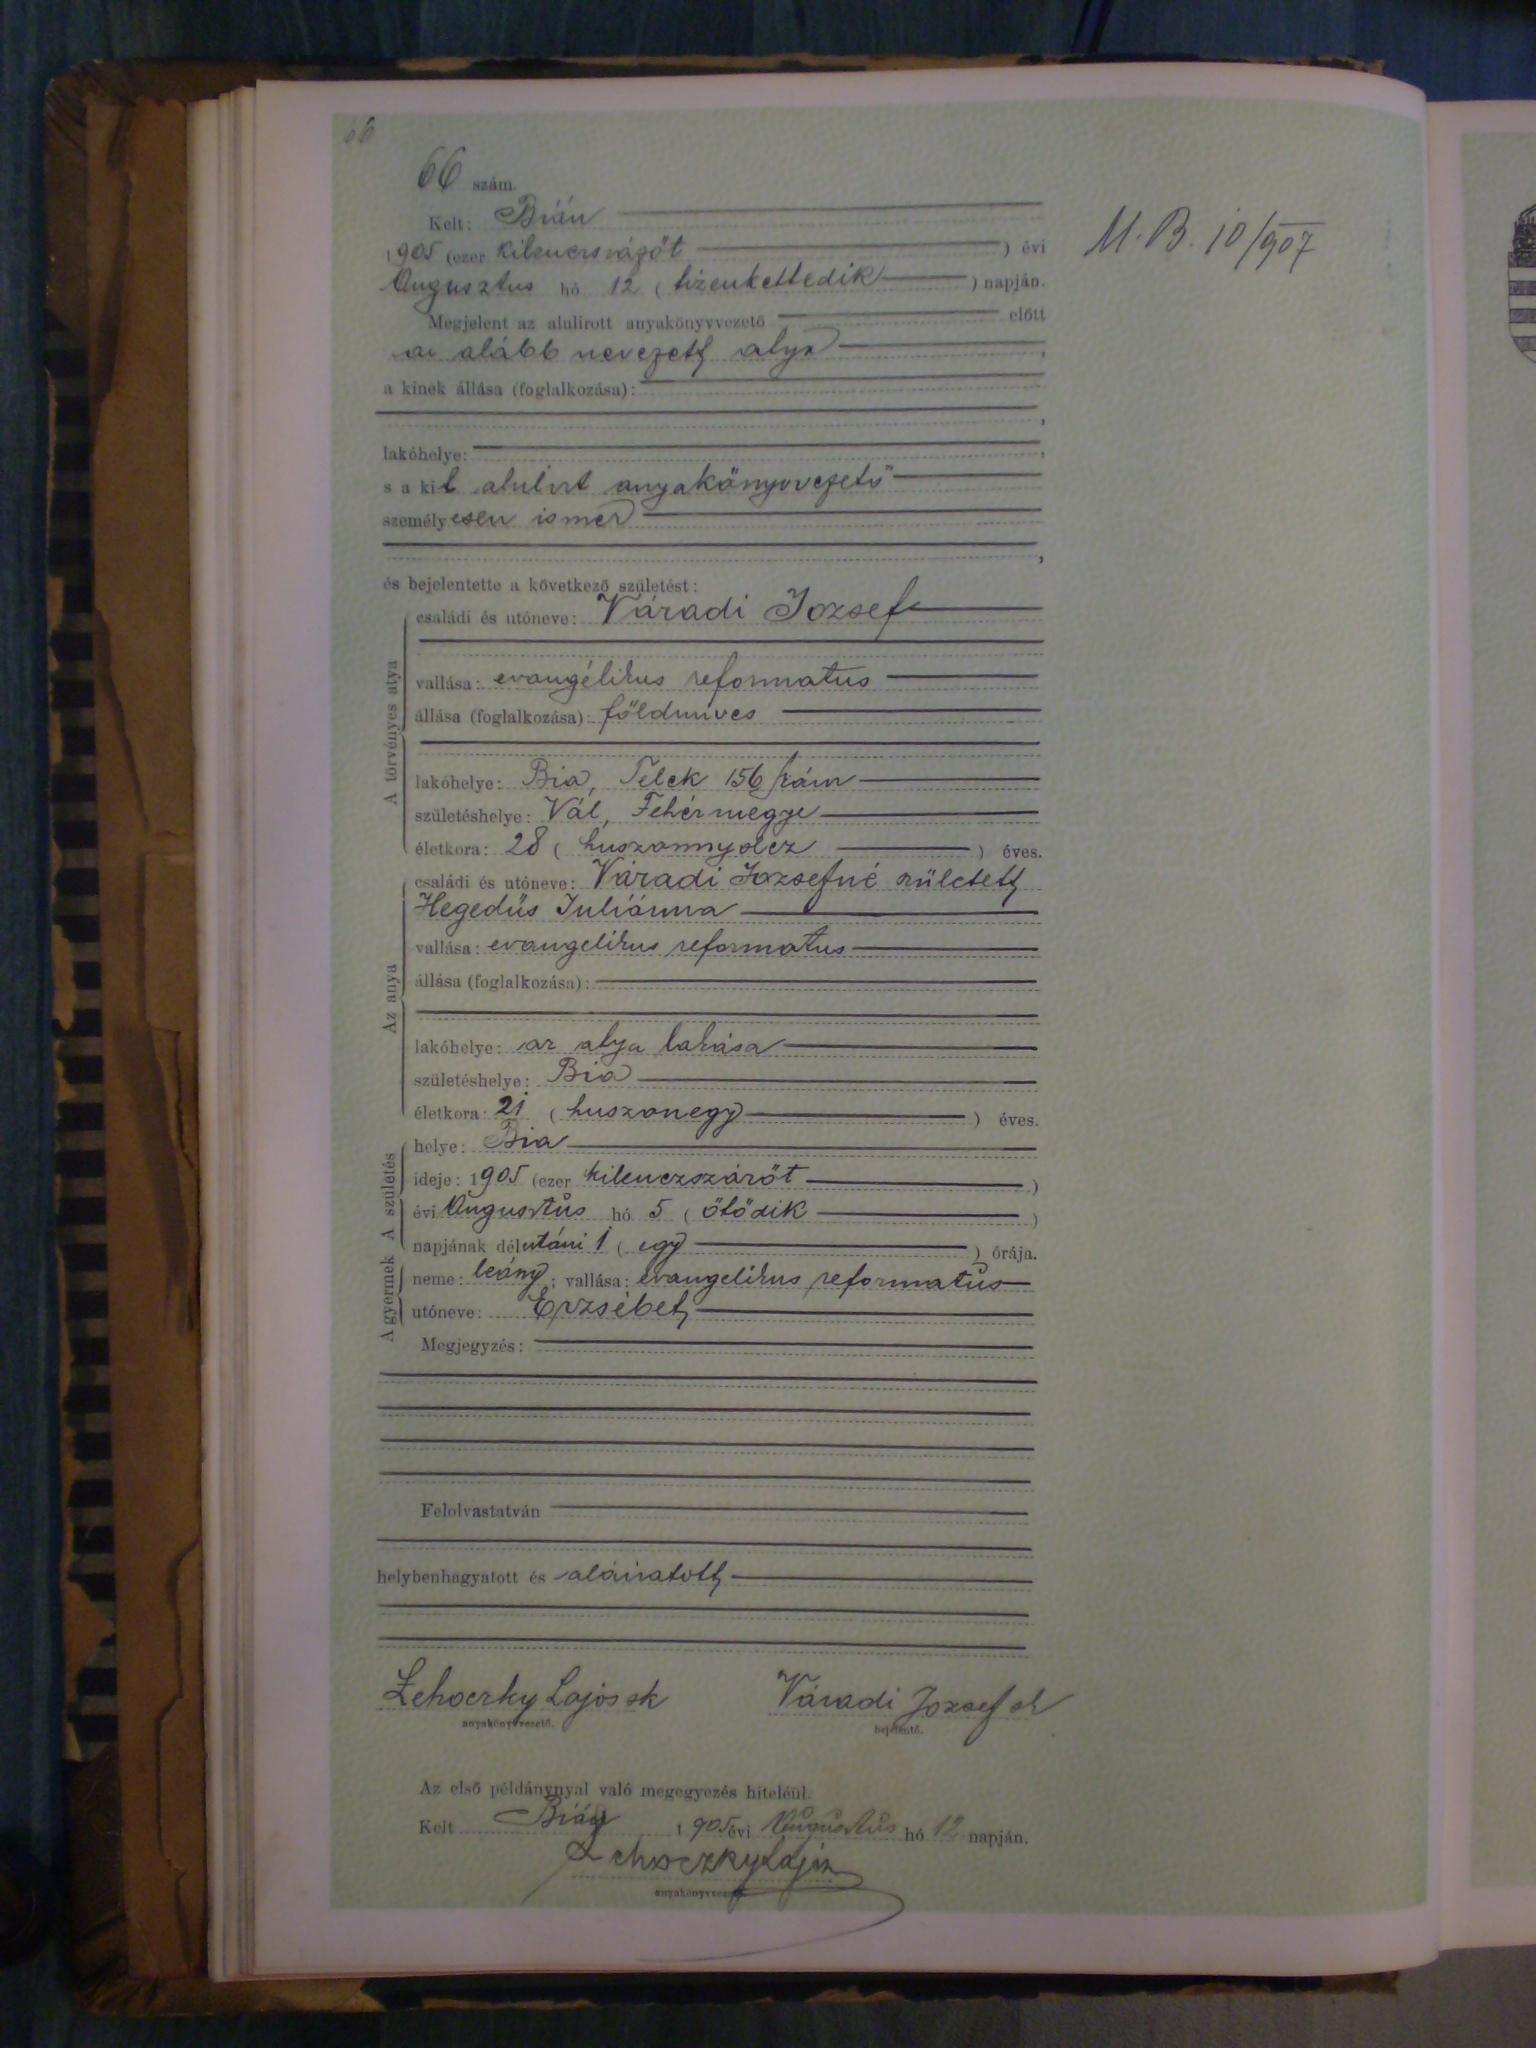 66
66 szám.
Kelt: Bián
1905 (ezer kilenczszázöt) évi
Augusztus hó 12 (tizenkettedik) napján.
Megjelent az alulirott anyakönyvvezető előtt
az alább nevezett atya,
a kinek állása (foglalkozása):
,
lakóhelye:,
s a kit alulirt anyakönyvvezető
személyesen ismer
,
és bejelentette a következő születést:
A törvényes atya
családi és utóneve: Váradi Jozsef
vallása: evangélikus reformatus
állása (foglalkozása): földmives
lakóhelye: Bia, Telek 156 szám
születéshelye: Vál, Fehérmegye
életkora: 28 (huszonnyolcz) éves.
Az anya
családi és utóneve: Váradi Jozsefné született
Hegedüs Juliánna
vallása: evangelikus reformatus
állása (foglalkozása):
lakóhelye: az atya lakása
születéshelye: Bia
életkora: 21 (huszonegy) éves.
A születés
helye: Bia
ideje: 1905 (ezer kilenczszázöt)
évi Augusztus hó 5 (ötödik)
napjának délutáni 1 (egy) órája.
A gyermek
neme: leány; vallása: evangelikus reformatus
utóneve: Erzsébet
Megjegyzés:
Felolvastatván
helybenhagyatott és aláiratott
Lehoczky Lajos sk Váradi Jozsef sk
anyakönyvvezető. bejelentő.
Az első példánynyal való megegyezés hiteléül.
Kelt Bián 1905 évi Augusztus hó 12 napján.
Lehoczky Lajos
anyakönyvvezető.
M. B. 10/907